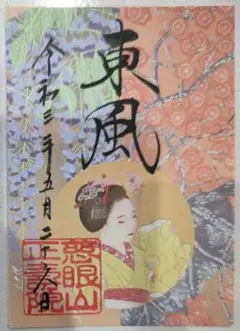 東風
令和三年五月二十六日
慈眼山
正壽院